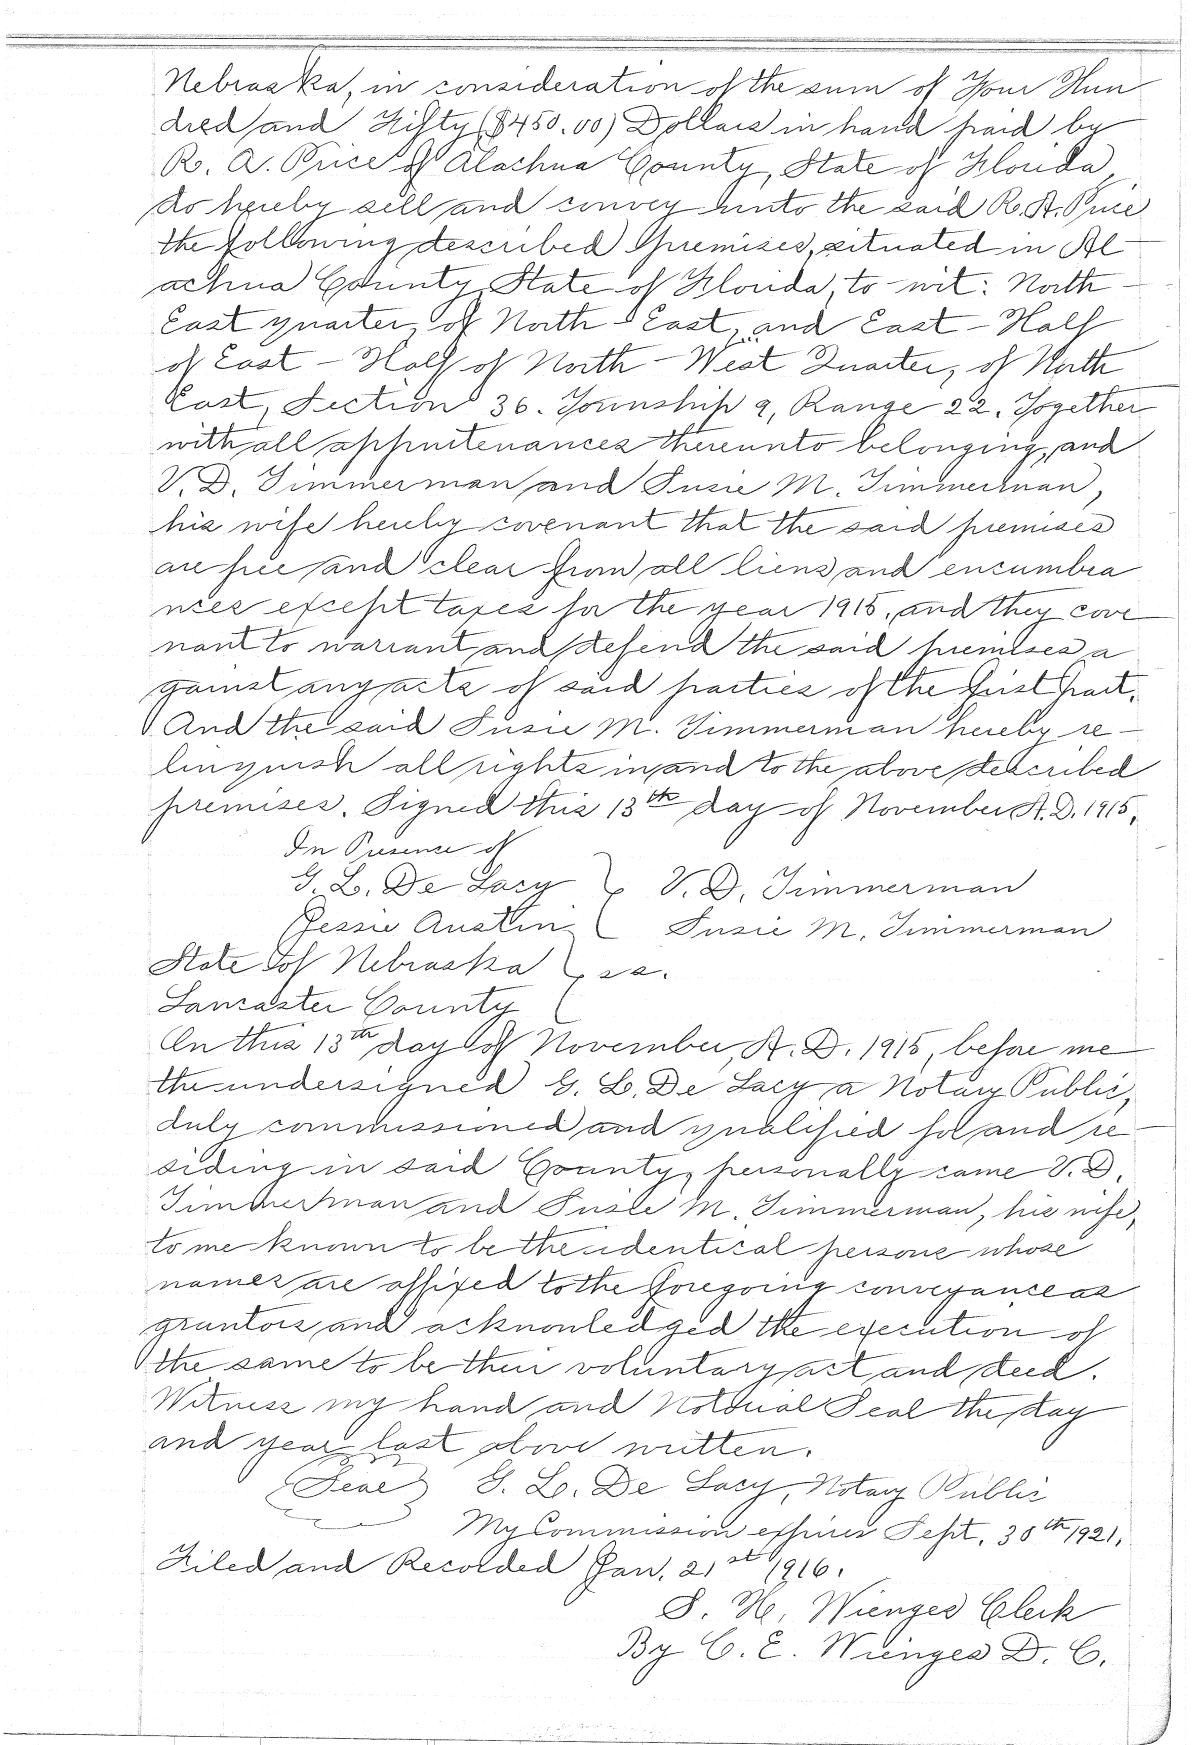 Nebraska, in consideration of the sum of Four Hun
dred and Fifty ($450.00) Dollars in hand paid by
R. A. Price of Alachua County, State of Florida,
do hereby sell and convey unto the said R. A. Price
the following described premises, situated in Al
achua County, State of Florida, to-wit: North -
East quarter, of North - East, and East - Half
of East - Half of North - West Quarter, of North
East, Section 36. Township 9, Range 22. Together
with all appurtenances thereunto belonging, and
V. D. Timmerman and Susie M. Timmerman,
his wife hereby covenant that the said premises
are free and clear from all liens and encumbra
nces except taxes for the year 1915, and they cove
nant to warrant and defend the said premises a
gainst any acts of said parties of the first part.
And the said Susie M. Timmerman hereby re-
linquish all rights in and to the above described
premises. Signed this 13th day of November A.D. 1915.
In Presence of
G. L. De Lacy } V. D. Timmerman
Jessie Austin } Susie M. Timmerman
State of Nebraska } ss.
Lancaster County
On this 13th day of November, A. D. 1915, before me
the undersigned G. L. De Lacy a Notary Public,
duly commissioned and qualified for and re
siding in said County, personally came V. D.
Timmerman and Susie M. Timmerman, his wife,
to me known to be the identical persons whose
names are affixed to the foregoing conveyance as
grantors and acknowledged the execution of
the same to be their voluntary act and deed.
Witness my hand and Notorial Seal the day
and year last above written.
(Seal) G. L. De Lacy, Notary Public
My Commission expires Sept. 30th 1921.
Filed and Recorded Jan. 21st 1916.
S. H. Wienges Clerk
By C. E. Wienges D. C.